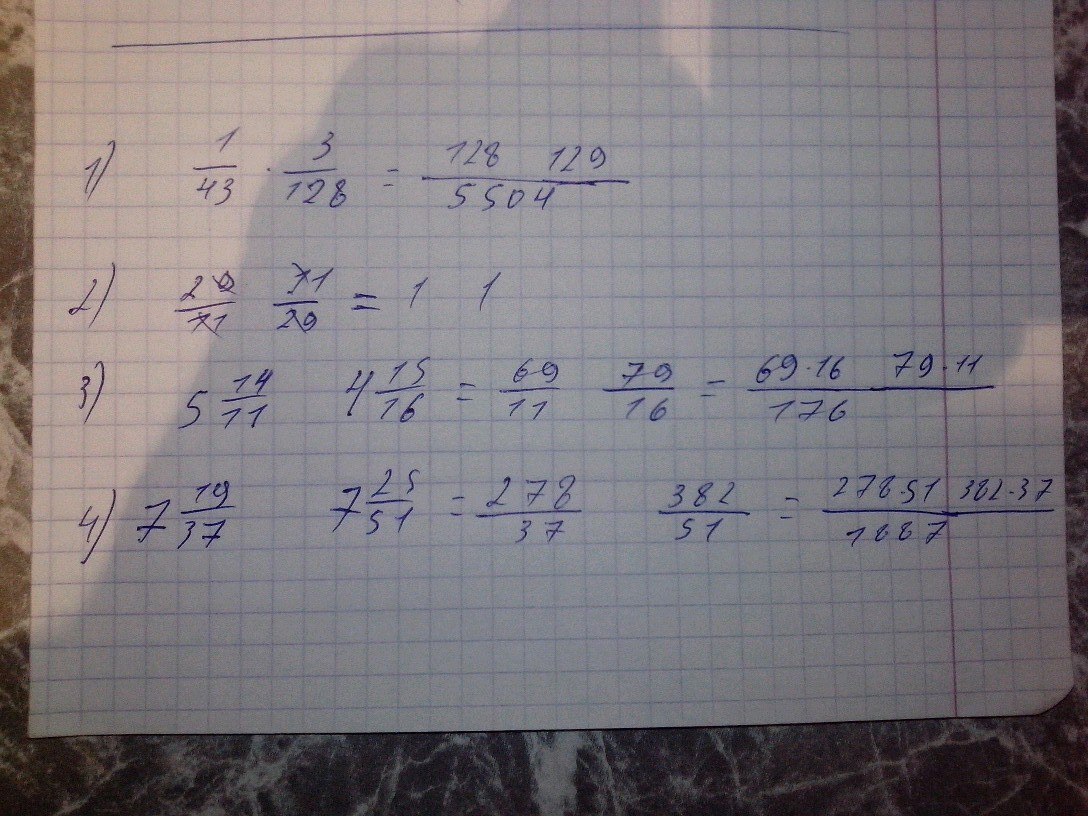 1) 1/43 · 3/128 = 128 129/5504
2) 29/71 71/29 = 1 1
3) 5 14/11 4 15/16 = 69/11 79/16 = 69·16 79·11/176
4) 7 19/37 7 25/51 = 278/37 382/51 = 278·51 382·37/1887